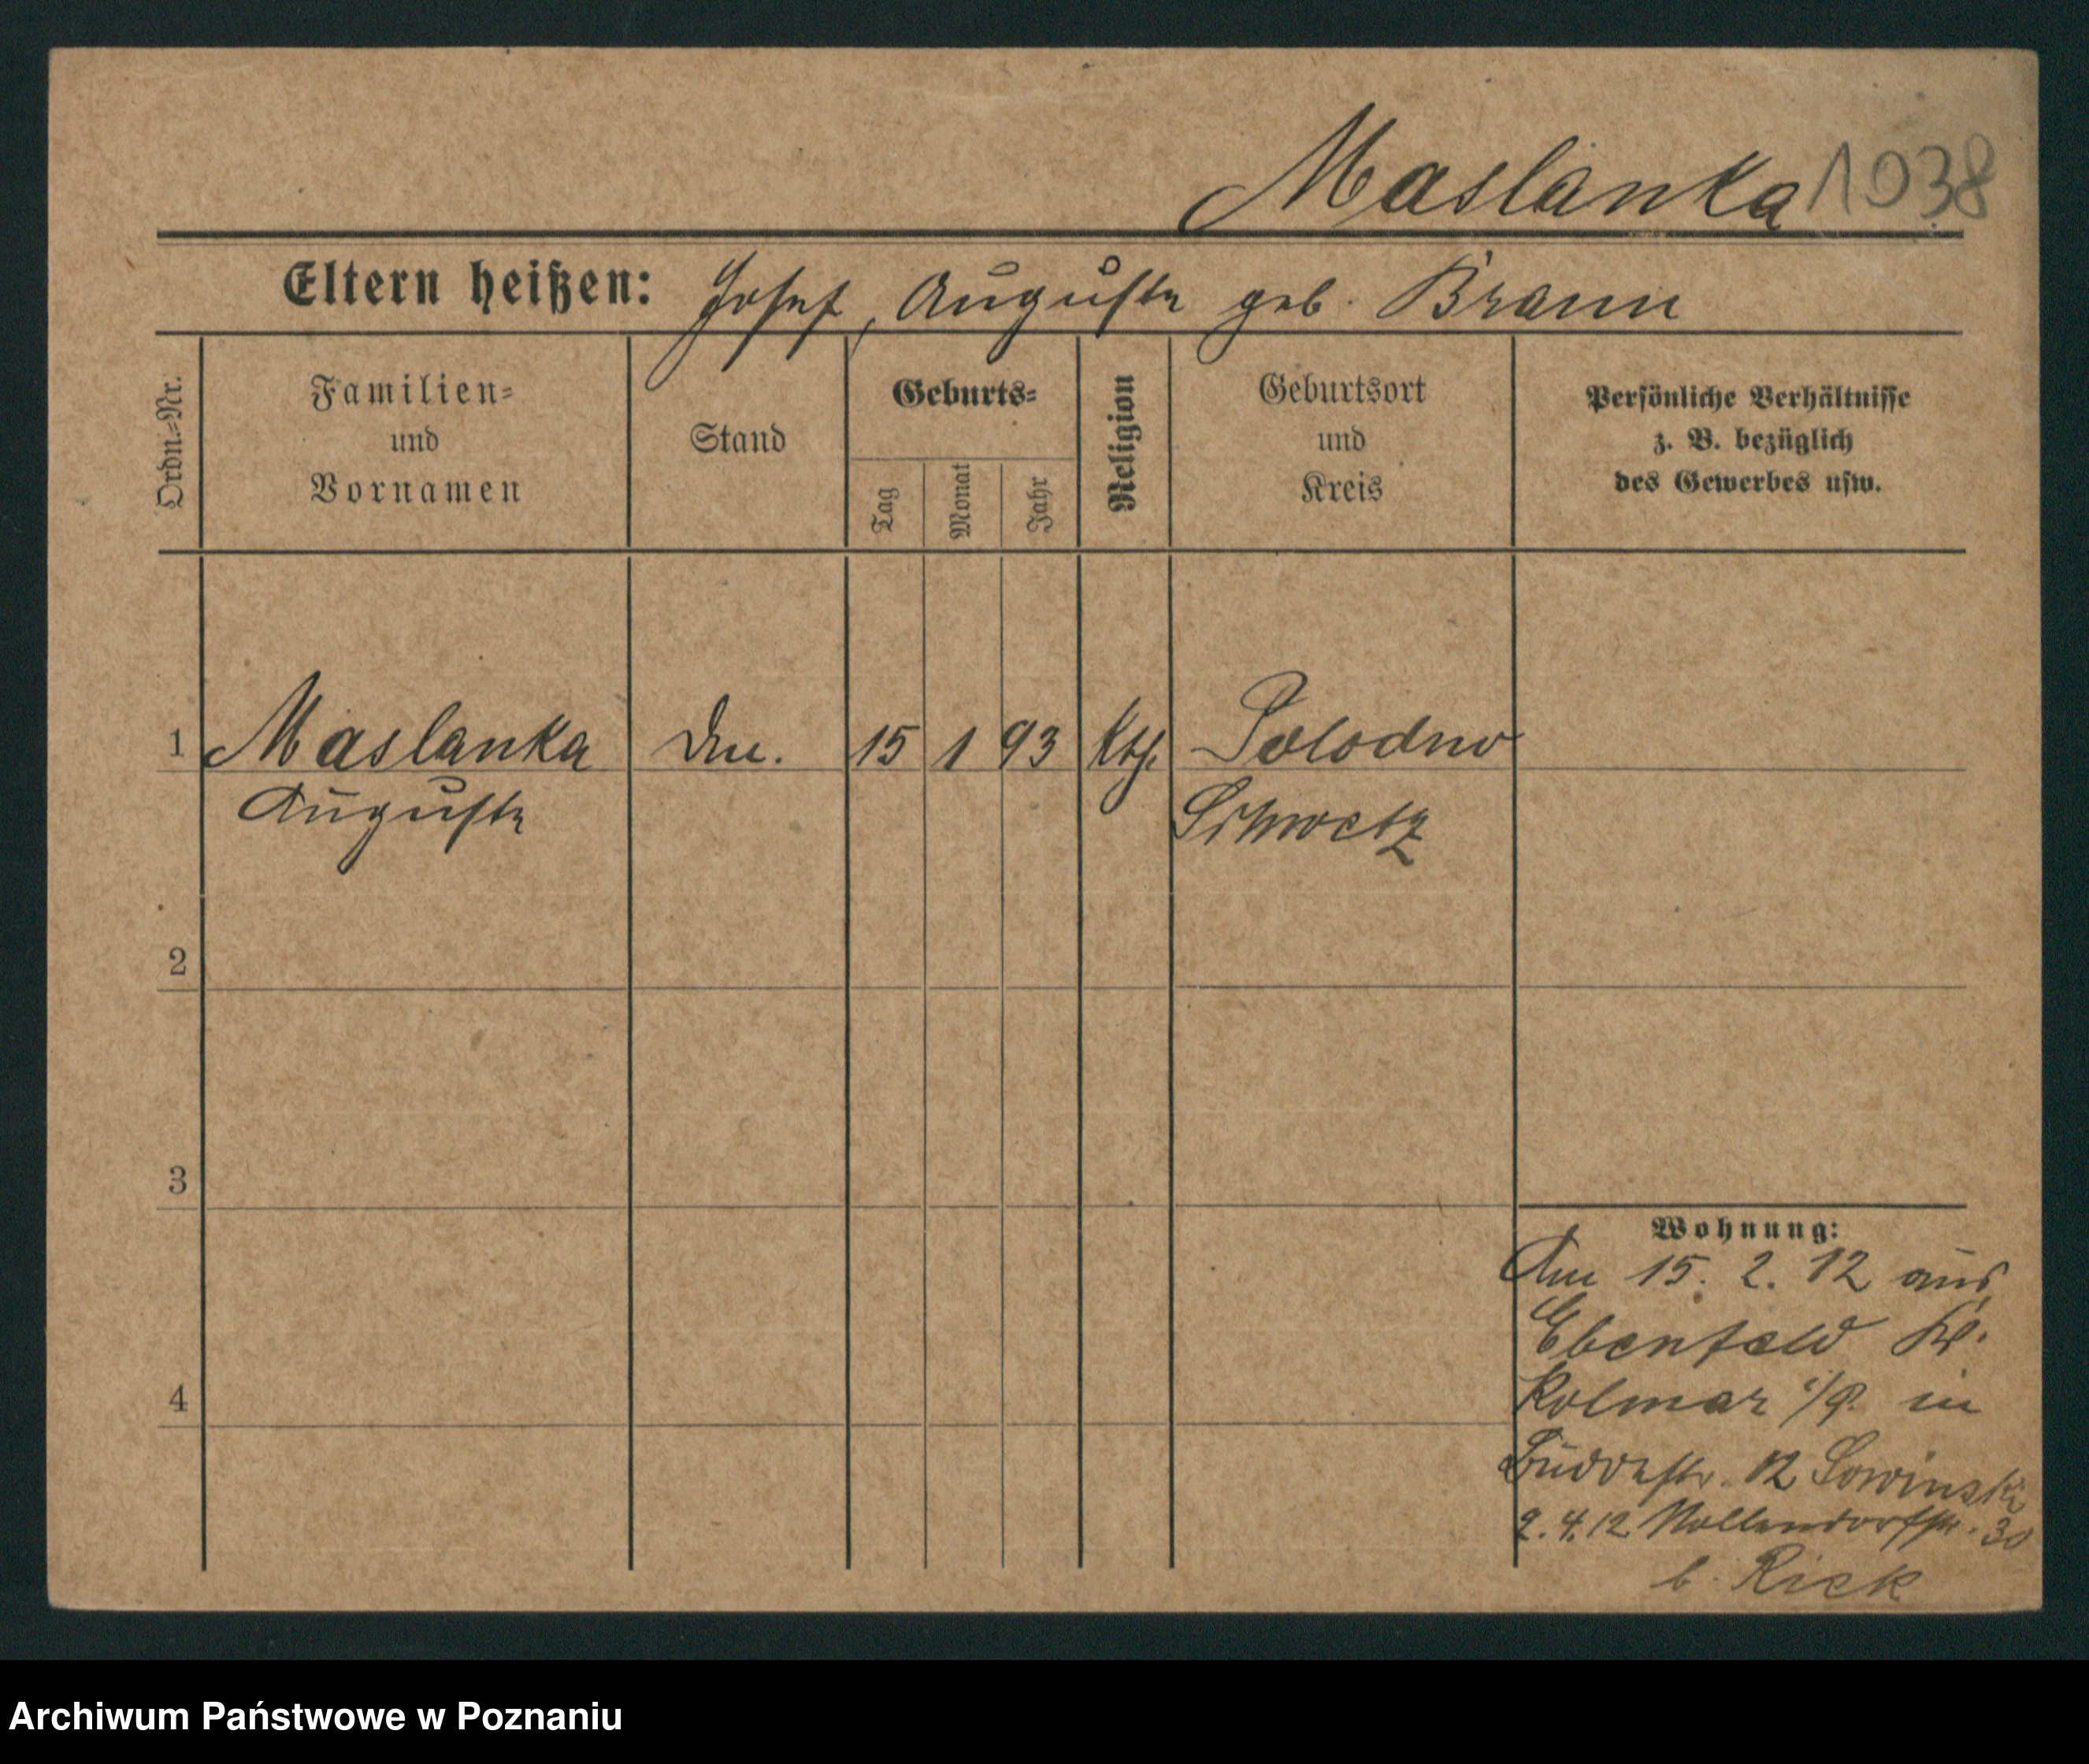 Maslanka 1038
Eltern heißen: Josef, Auguste geb. Braun
Ordn.-Nr.
Familien-
und
Vornamen
Stand
Geburts-
Tag
Monat
Jahr
Religion
Geburtsort
und
Kreis
Persönliche Verhältnisse
z. B. bezüglich
des Gewerbes usw.
1 Maslanka 15 1 93 Kth. Polodno
Auguste Schwetz
2
3
4
Wohnung:
Am 15. 2. 12 aus
Ebenfeld Kr.
Kolmar i/P. in
12 Sowinski
2.4.12 Nollendorfstr. 30
b. Rick
Archiwum Państwowe w Poznaniu